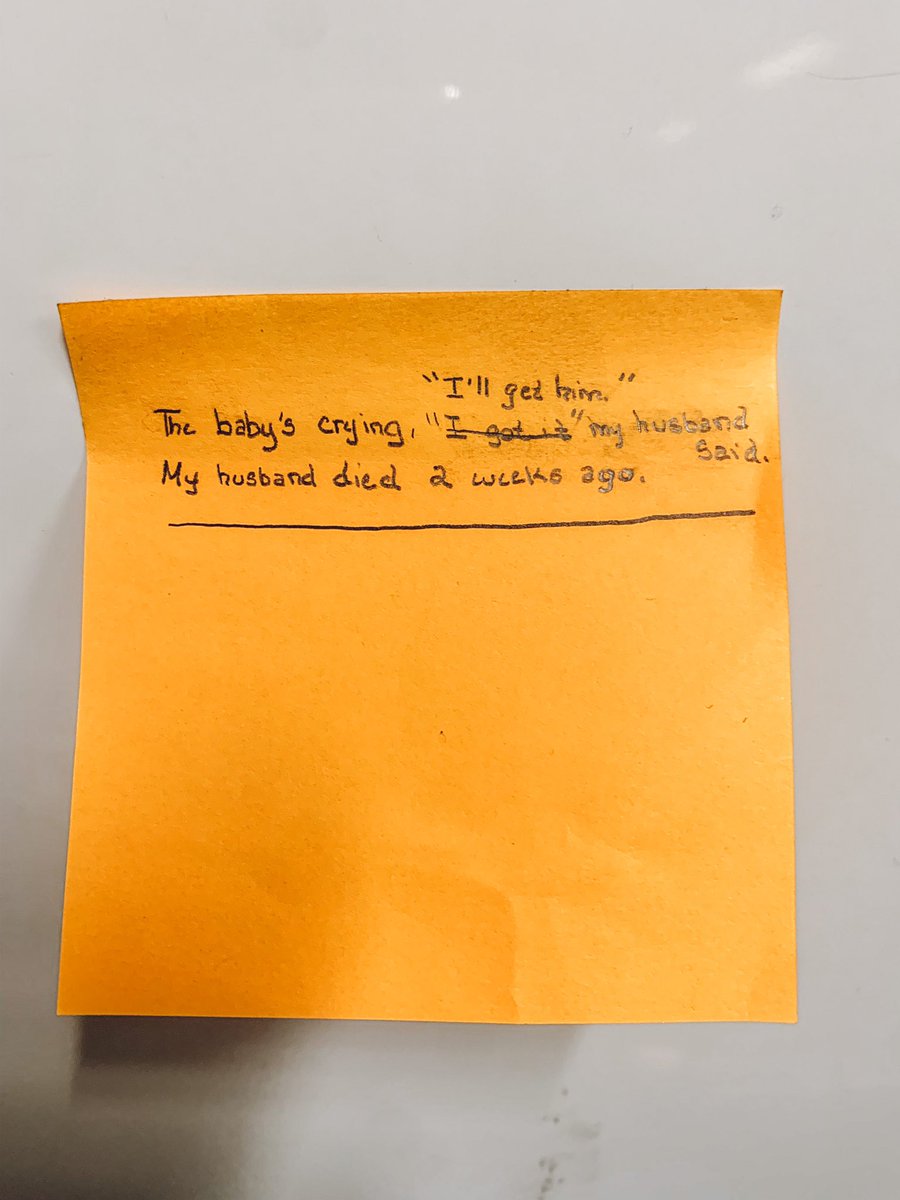 "I'll get him."
The baby's crying, "I got it" my husband
said.
My husband died 2 weeks ago.